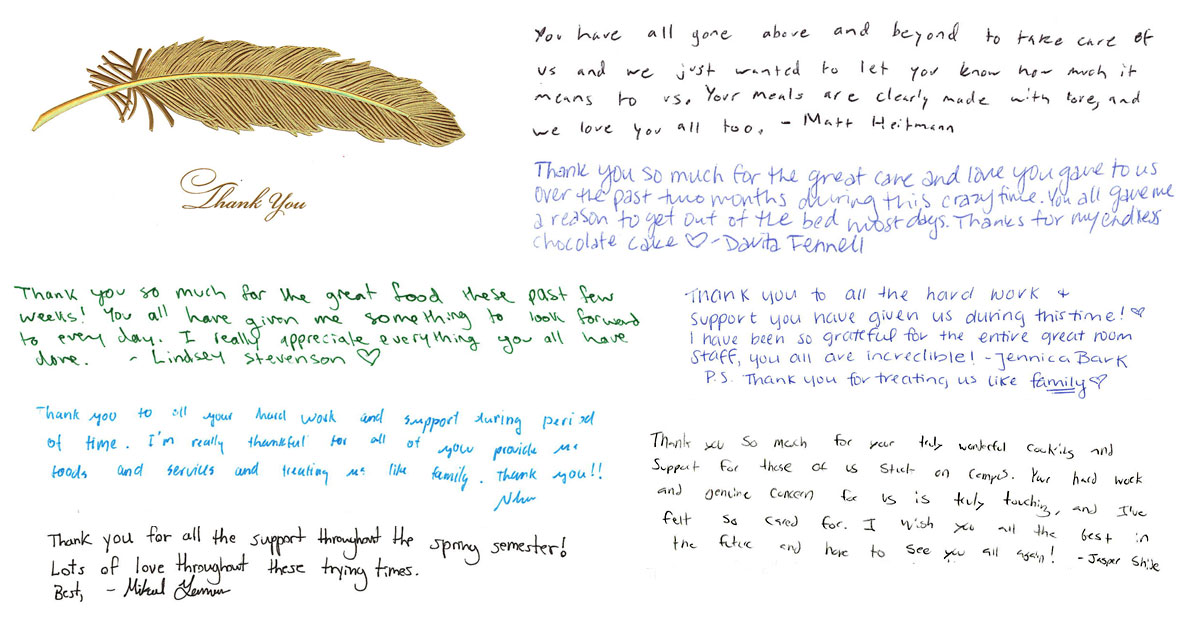 Thank You
You have all gone above and beyond to take care of
us and we just wanted to let you know how much it
means to us. Your meals are clearly made with love, and
we love you all too. - Matt Heitmann
Thank you so much for the great care and love you gave to us
over the past two months during this crazy time. You all gave me
a reason to get out of the bed most days. Thanks for my endless
chocolate cake ♡ - Davita Fennell
Thank you so much for the great food these past few
weeks! You all have given me something to look forward
to every day. I really appreciate everything you all have
done. - Lindsey Stevenson ♡
Thank you to all the hard work +
support you have given us during this time! ♡
I have been so grateful for the entire great room
staff, you all are incredible! - Jennica Bark
P.S. Thank you for treating us like family ♡
Thank you to all your hard work and support during period
of time. I'm really thankful for all of you provide us
foods and services and treating us like family. Thank you!!
Thank you so much for your truly wonderful cooking and
support for those of us stuck on campus. Your hard work
and genuine concern for us is truly touching, and I've
felt so cared for. I wish you all the best in
the future and hope to see you all again! - Jasper Shide
Thank you for all the support throughout the spring semester!
Lots of love throughout these trying times.
Best, -